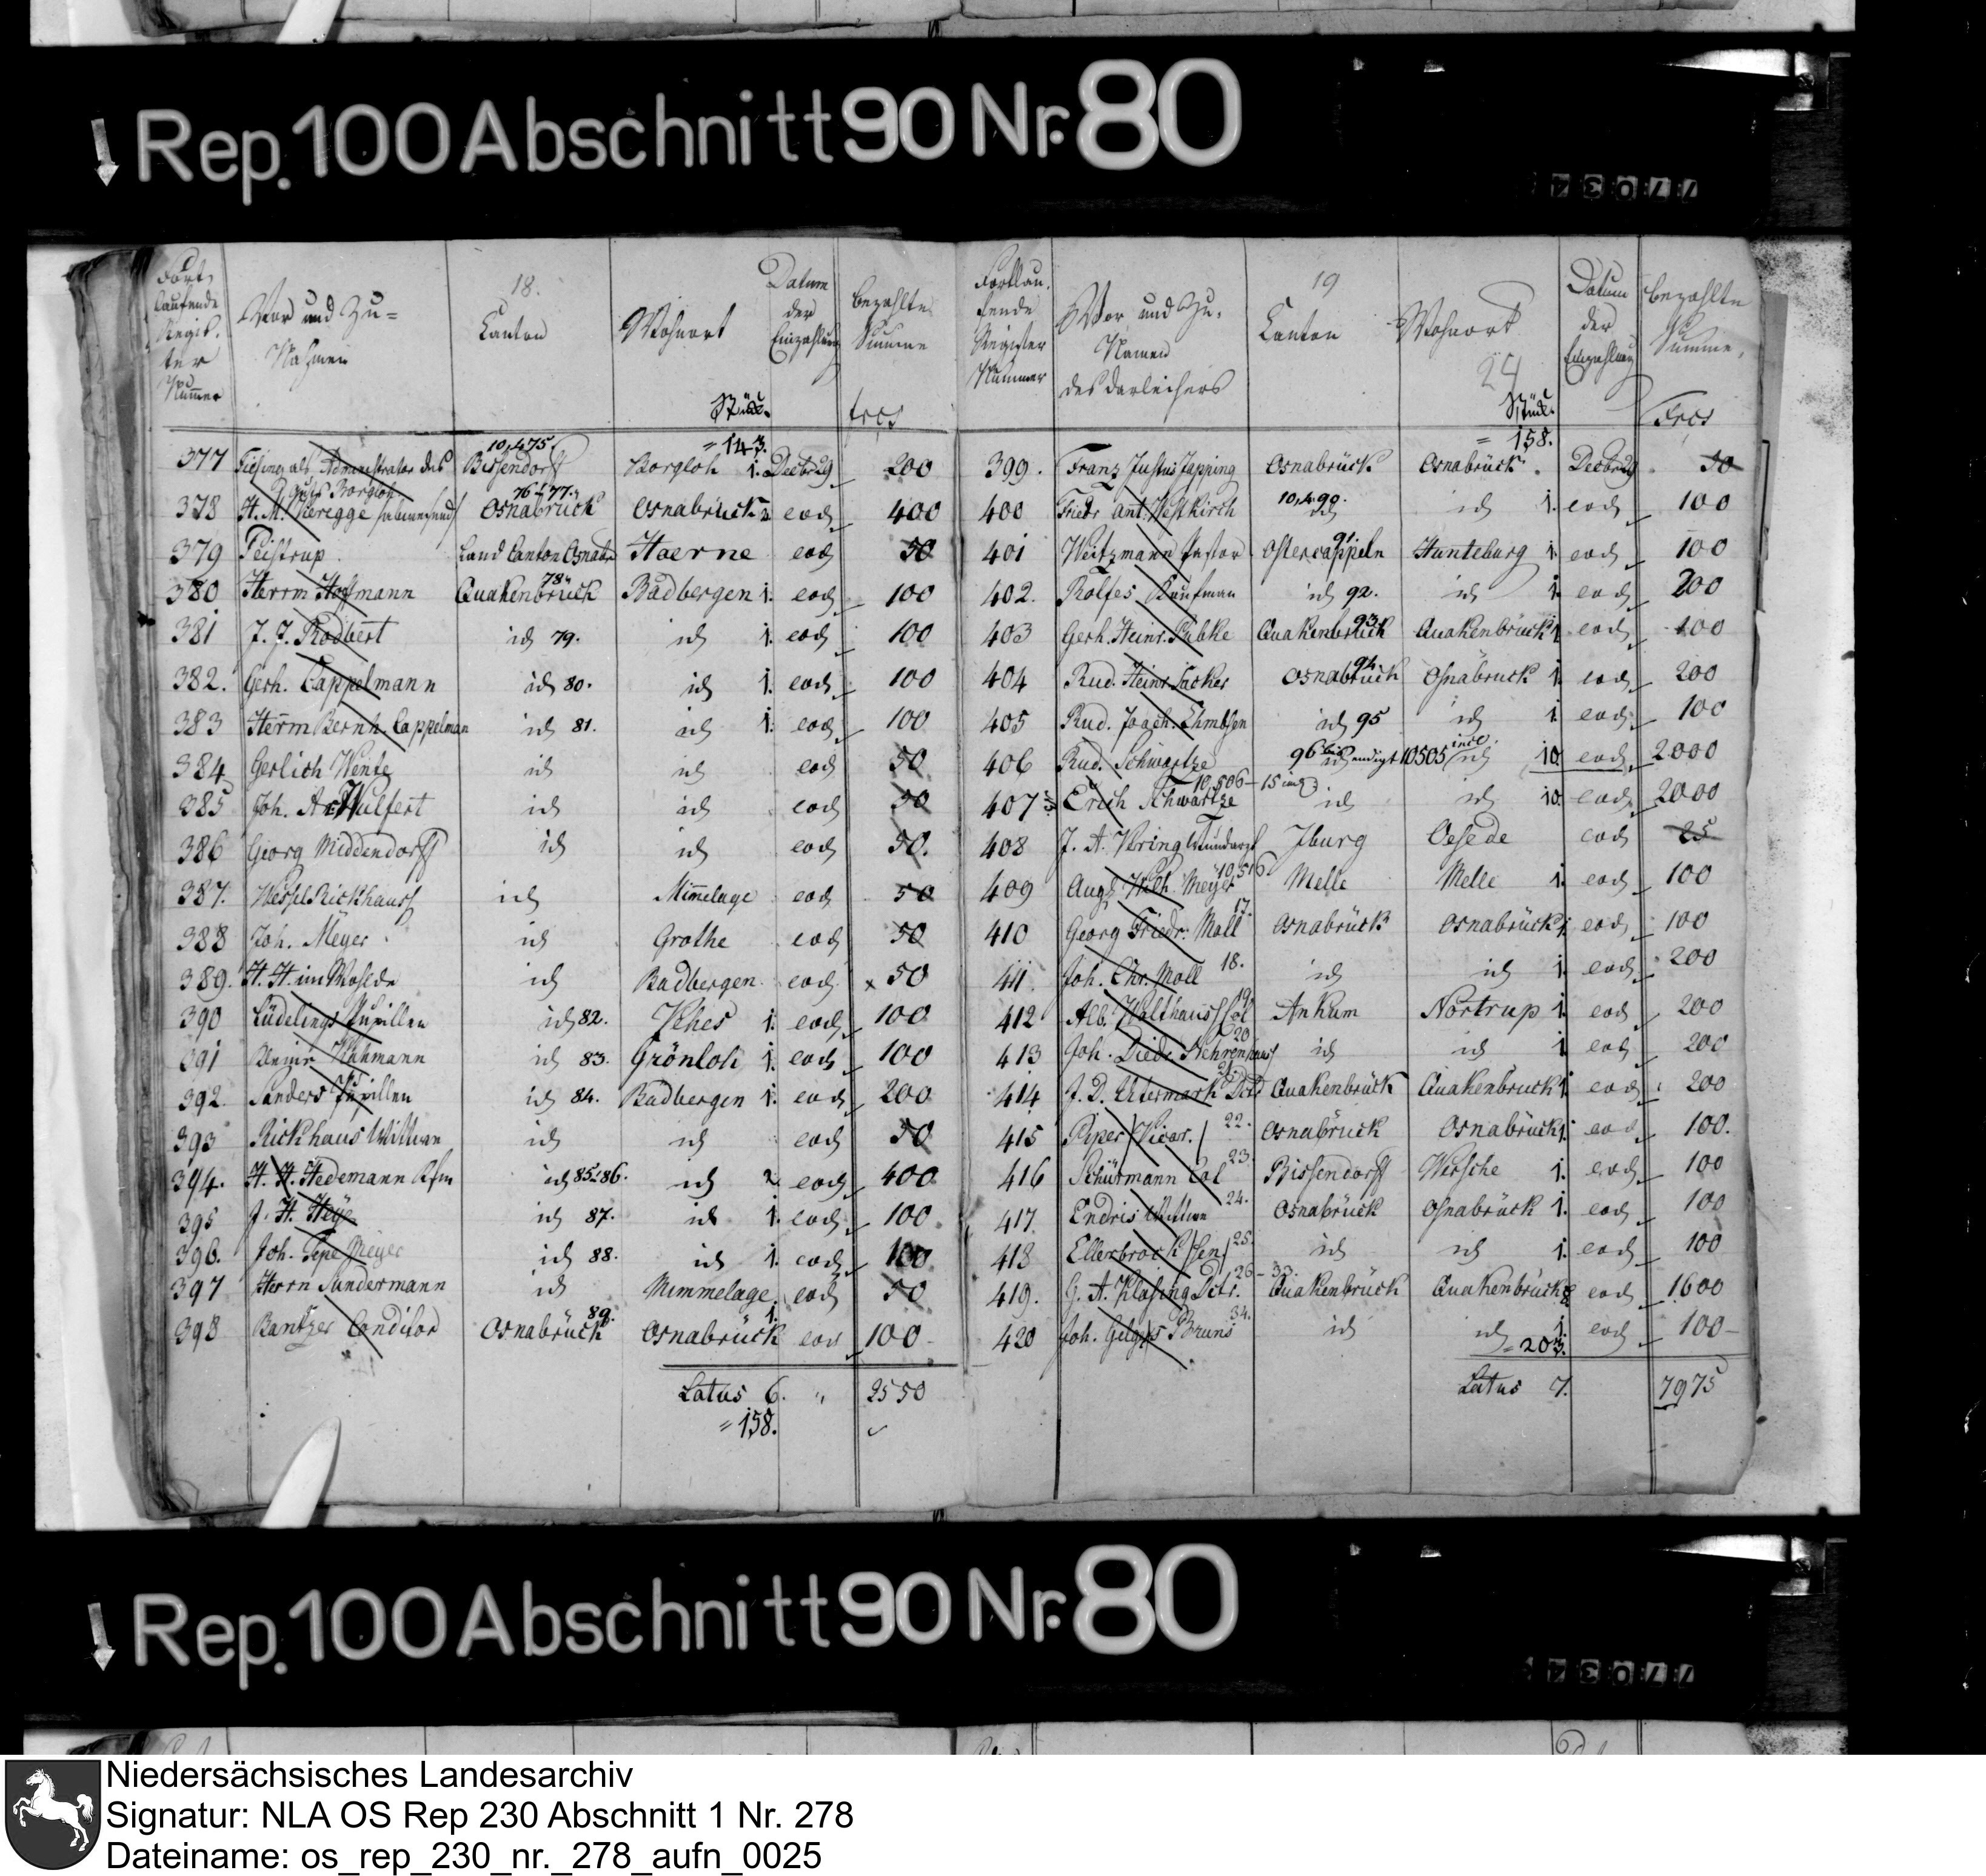 Rep. 100 Abschnitt 90 Nr. 80
77034
18.
Fort
laufende
Regis-
ter
Nummer
Vor und Zu-
Nahmen
Canton
Wohnort
Datum
der
Einzahlung
bezahlte
Summe
Stück.
frcs
= 143.
377 als Administrator des Guts Borgloh 10,475 Bissendorf Borgloh 1. Decbr 200
378 H. M. 76 & 77. Osnabrück Osnabrück 2 eod 400
379 Peistrup Land Canton Osnabr Haerne eod 50
380 Herrm Hoffmann 78 Quakenbrück Badbergen 1. eod 100
381 J. J. Rodbert id 79. id 1. eod 100
382. Gerh. Cappelmann id 80. id 1. eod 100
383 Herm Bernh. Cappelman id 81. id 1. eod 100
384 Gerlich Wente id id eod 50
385 Joh. Wulfert id id eod 50
386 Georg Middendorff id id eod 50.
387. Wessel Rickhaus id Mimelage eod 50
388 Joh. Meyer id Grothe eod 50
389. H. H. im Wohlde id Badbergen eod x 50
390 Lüdelings Pupillen id 82. Vehes 1. eod 100
391 id 83. Grönloh 1. eod 100
392. Sanders Pupillen id 84. Badbergen 1. eod 200
393 Rickhaus Wittwe id id eod 50
394. H. H. Hedemann Kfm id 85-86. id 2. eod 400
395 J. H. Heye id 87. id 1. eod 100
396. Joh. Meyer id 88. id 1. eod 100
397 Herm Sundermann id Mimmelage eod 50
398 Bantzer Conditor 89. Osnabrück Osnabrück 1. eod 100
Latus 6. " 2550
= 158.
19
24
Fortlau-
fende
Register
Nummer
Vor und Zu-
Namen
des Darleihers
Canton
Wohnort
Datum
der
Einzahlung
bezahlte
Summe,
Stück.
Frcs
= 158.
399. Franz Justus Japping Osnabrück Osnabrück. Decbr 50
400 Friedr Ant. Westkirch 10,490. id id 1. eod 100
401 Weitzmann Pastor 91. Ostercappeln Hunteburg 1. eod 100
402. Rolfes Kaufman id 92. id 1. eod 200
403 Gerh. Heinr. Lübke 93 Quakenbrück Quakenbrück 1. eod 100
404 Rud. Heinr. 94 Osnabrück Osnabrück 1. eod 200
405 Rud. Joach. Ehmbsen id 95 id 1. eod 100
406 Rud. Schwartze 96 bis id endigt 10505 incl. id 10. eod 2000
407 Erich Schwartze 10,506-15 incl id id 10. eod 2000
408 J. A. Vering Wundarzt Jburg Oesede eod 25
409 Aug. Wilh. Meyer 10,516. Melle Melle 1. eod 100
410 Georg Friedr. Moll 17. Osnabrück Osnabrück 1. eod 100
411. Joh. Chr. Moll 18. id id 1. eod 200
412 Alb. Walthaus Col 19. Ankum Nortrup 1. eod 200
413 Joh. Diedr. 20 id id 1. eod 200
414 J. D. Untermark Dctr 21. Quakenbrück Quakenbrück 1 eod 200
415 Piper /Vicar./ 22. Osnabrück Osnabrück 1. eod 100.
416 Schürmann Col 23. Bissendorf Wersche 1. eod 100
417. Endris Wittwe 24. Osnabrück Osnabrück 1. eod 100
418 Ellerbrock /sen/ 25. id id 1. eod 100
419. G. A. Klasing Dctr. 26-33. Quakenbrück Quakenbrück 8. eod 1600
420 Joh. Bruns 34. id id 1. eod 100
= 203.
Latus 7. 7975
Rep. 100 Abschnitt 90 Nr. 80
77034
Niedersächsisches Landesarchiv
Signatur: NLA OS Rep 230 Abschnitt 1 Nr. 278
Dateiname: os_rep_230_nr._278_aufn_0025